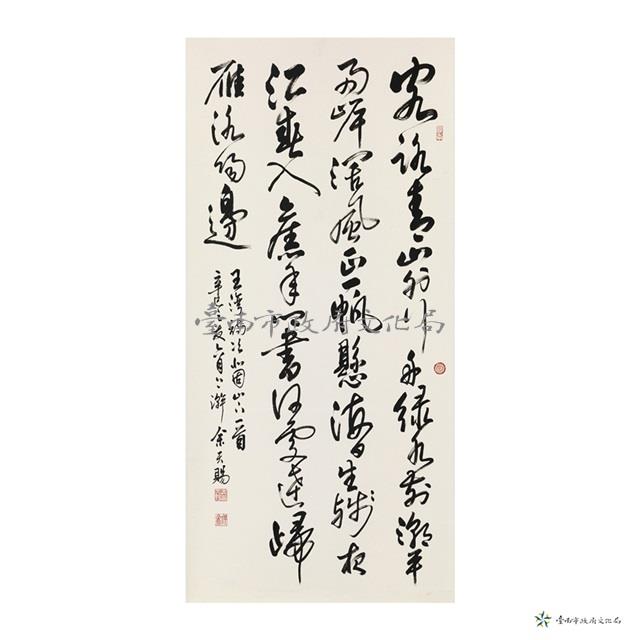 客路青山外行舟綠水前潮平
兩岸闊風正一帆懸海日生殘夜
江春入舊年鄉書何處達歸
雁洛陽邊
王灣 次北固山下一首
辛巳 夏六月上澣 余天賜
臺南市政府文化局
臺南市政府文化局